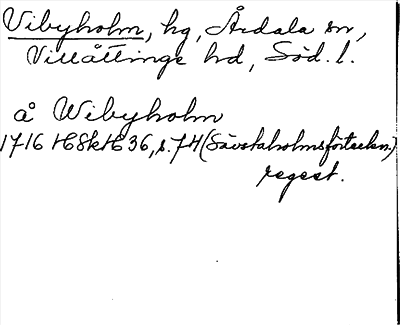 Vibyholm, hg, Årdala sn,
Villåttinge hd, Söd. l.
å Wibyholm
1716 HSH 36, s. 74 (Sävstaholmsförteckn.)
regest.